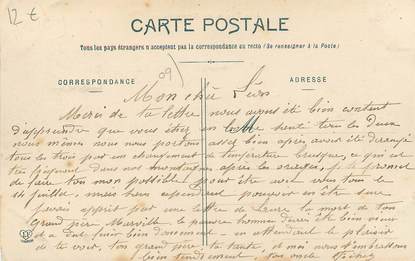 12 €
CARTE POSTALE
Tous les pays étrangers n'acceptent pas la correspondance au recto (Se renseigner à la Poste)
CORRESPONDANCE
09
ADRESSE
Mon cher Léon
Merci de ta lettre nous avons été bien content
d'apprendre que vous étiez en bonne santé tous les deux
nous mêmes nous nous portons assez bien après avoir été dérangé
tous les trois par un changement de température brusque, ce qui est
très fréquent dans nos montagnes après les orages, je te promet
de faire tout mon possible pour être avec vous tous le
14 juillet, mais sans cependant pouvoir en être sur
J'avais appris par une lettre de Laure la mort de ton
Grand père le pauvre homme devait être bien vieux
et a dû finir bien doucement - en attendant le plaisir
de te voir, ton grand père, ta tante, et moi nous t'embrassons
bien tendrement, ton oncle